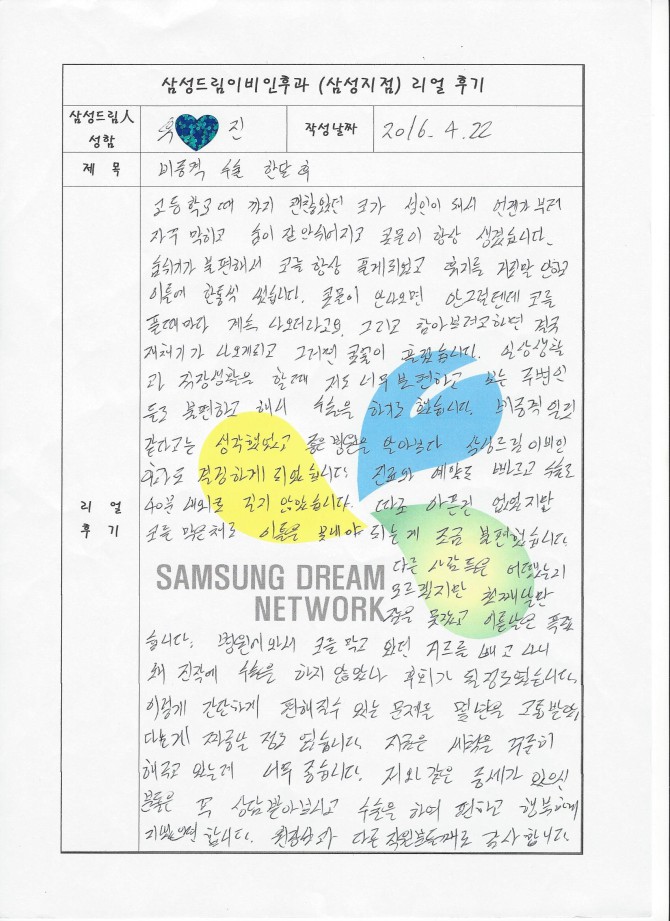 삼성드림이비인후과 (삼성지점) 리얼 후기
삼성드림人 성함
진
작성날짜
2016. 4. 22
제 목
비중격 수술 한달 후
리 얼 후 기
고등학교때 까지 괜찮았던 코가 성인이 돼서 언젠가부터
자꾸 막히고 숨이 잘 안쉬어지고 콧물이 항상 생겼습니다.
숨쉬기가 불편해서 코를 항상 풀게되었고 휴지를 거짓말 안하고
이틀에 한통씩 썼습니다. 콧물이 안나오면 안그럴텐데 코를
풀때마다 계속 나오더라고요. 그리고 참아보려고하면 결국
재채기가 나오게되고 그러면 콧물이 흘렀습니다. 일상생활
과 직장생활을 할때 저도 너무 불편하고 보는 주변인
들도 불편하고 해서 수술을 하기로 했습니다. 비중격일것
같다고는 생각했었고 좋은병원을 알아보다 삼성드림이비인
후과로 결정하게 되었습니다. 진료와 예약도 빠르고 수술도
40분 내외로 길지 않았습니다. 따로 아픈건 없었지만
코를 막은채로 이틀은 보내야 되는게 조금 불편했습니다.
다른 사람들은 어땠는지
모르겠지만 첫째날만
잠을 못잤고 이튿날은 푹잤
SAMSUNG DREAM
NETWORK
습니다. 병원에 와서 코를 막고 있던 거즈를 빼고 나니
왜 진작에 수술을 하지 않았나 후회가 될정도였습니다.
이렇게 간단하게 편해질수 있는 문제를 몇년을 고통받았
다는게 짜증날 정도 였습니다. 지금은 세척을 꾸준히
해주고 있는데 너무 좋습니다. 저와 같은 증세가 있으신
분들은 꼭 상담받아보시고 수술을 하여 편하고 행복하게
지냈으면 합니다. 원장님과 다른 직원분들께도 감사합니다.